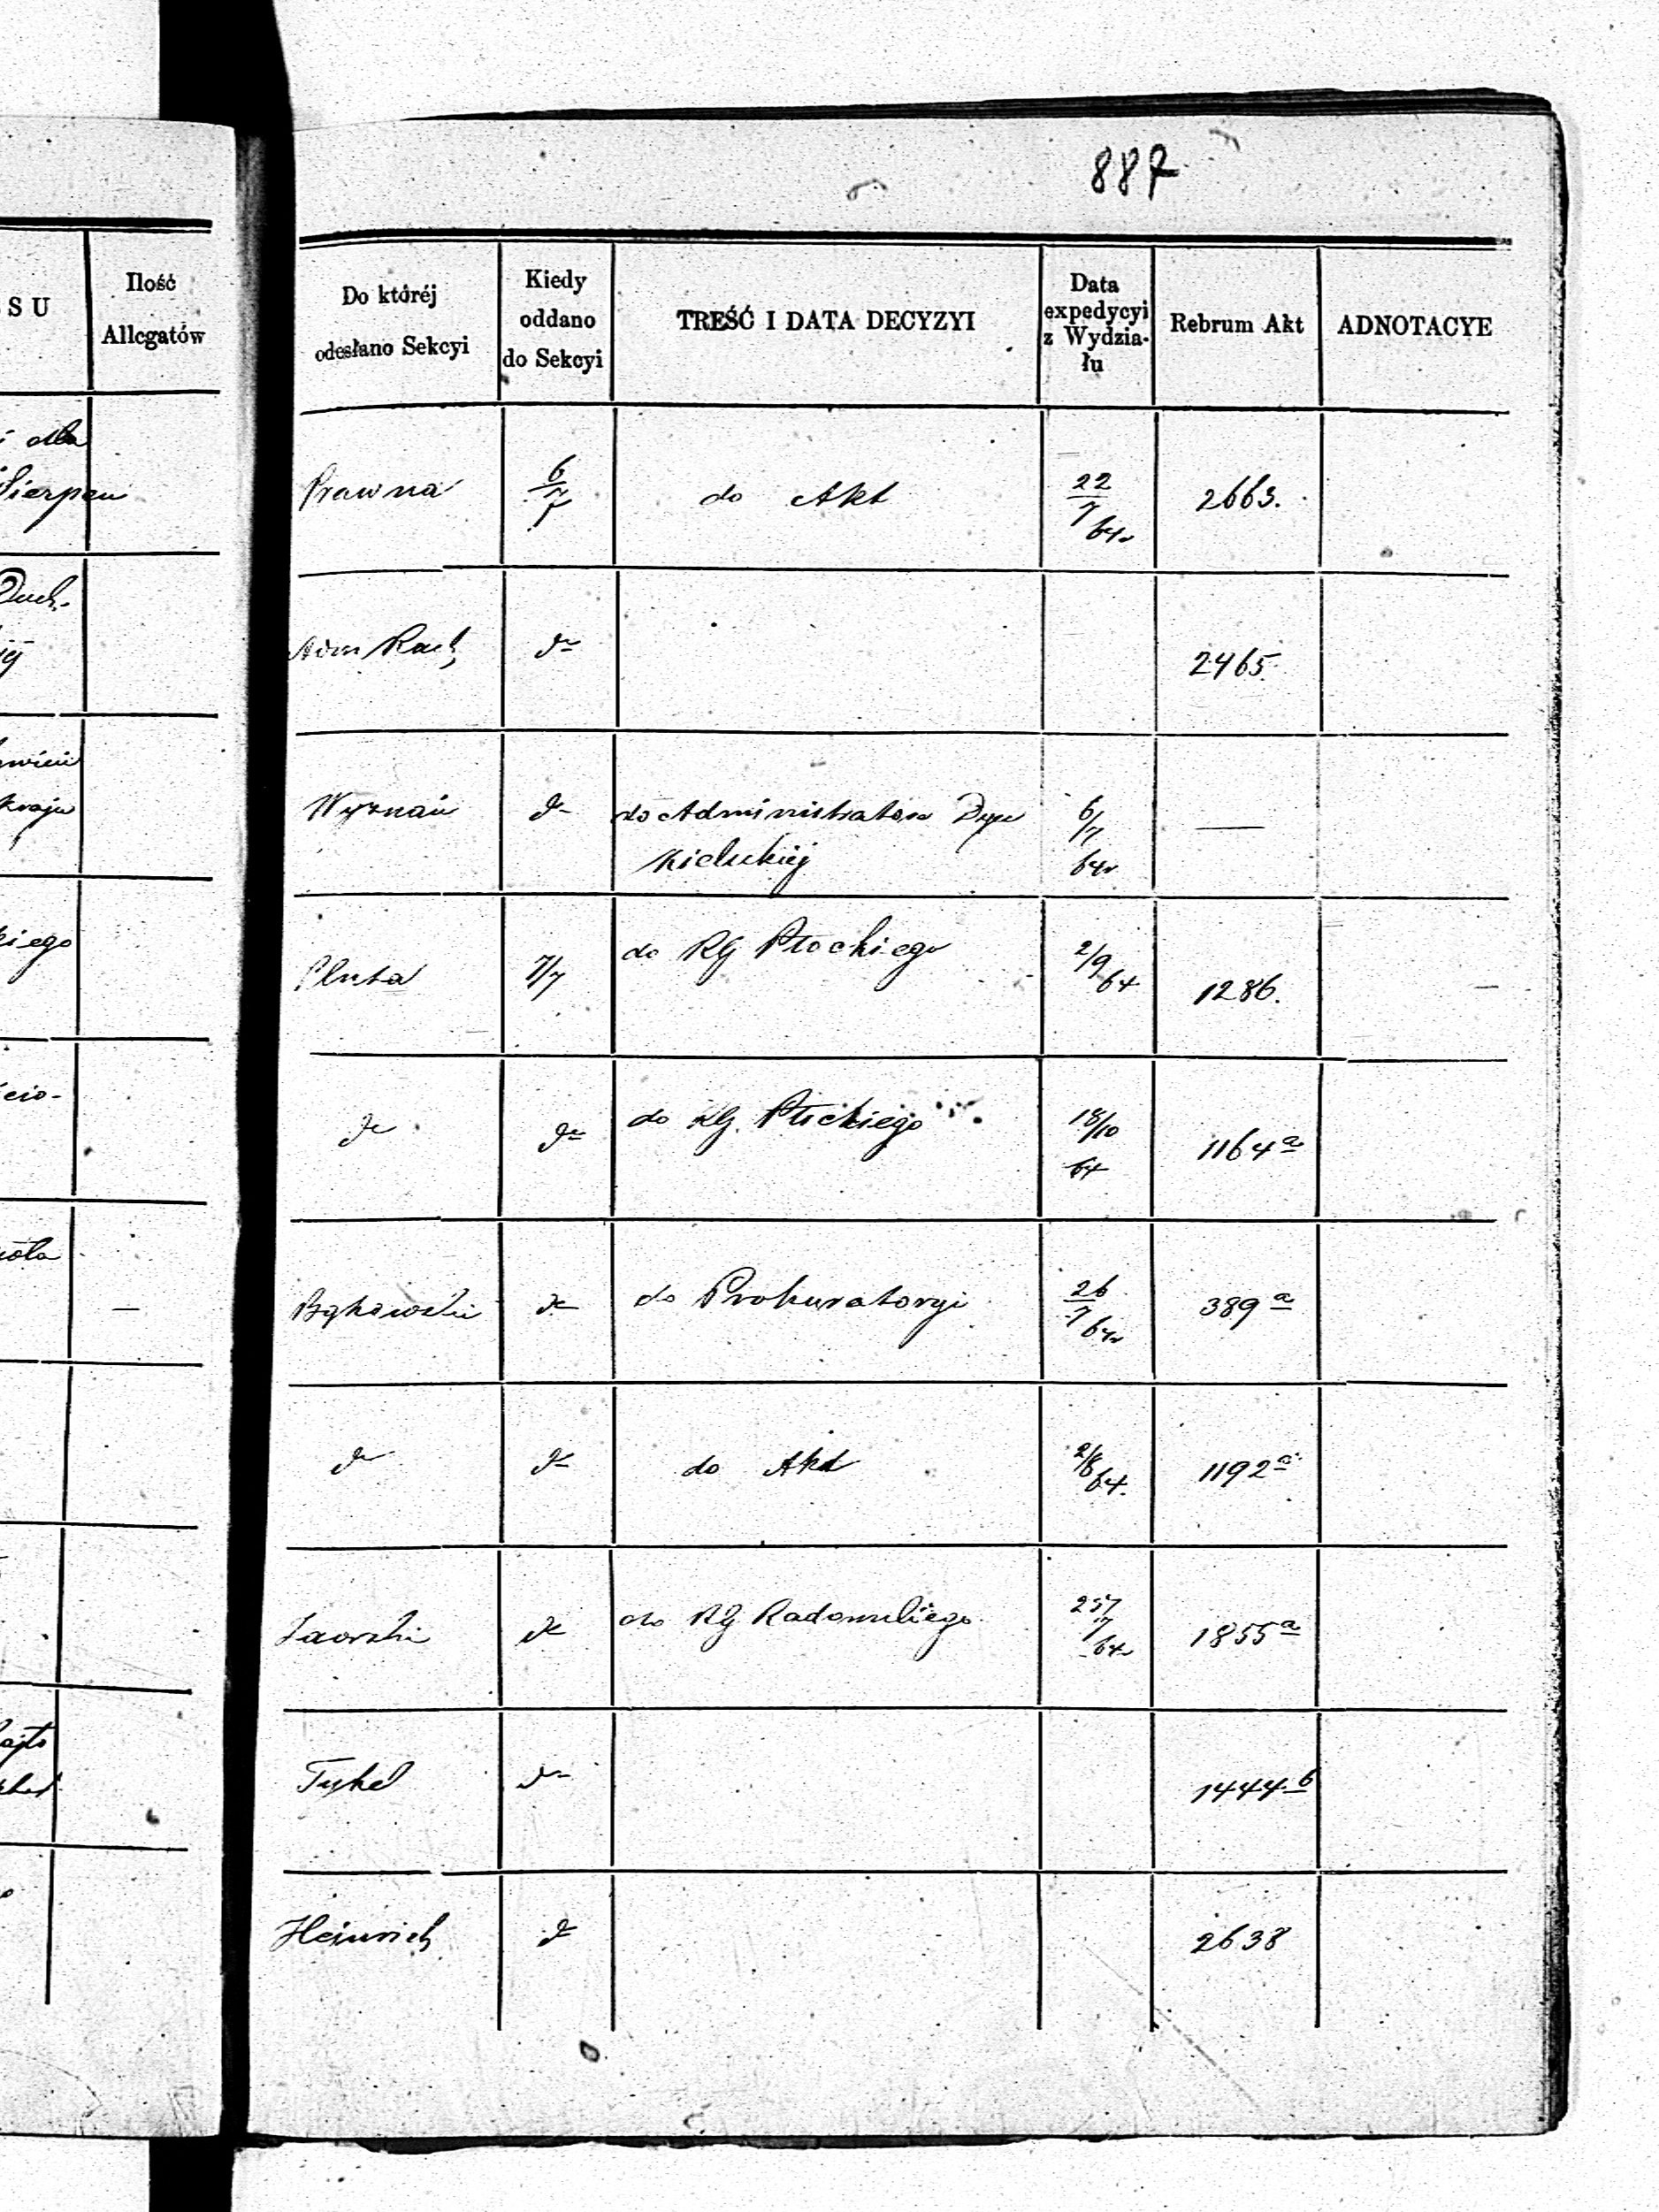 887
SU
Ilość
Allegatów
Do któréj
odesłano Sekcyi
Kiedy
oddano
do Sekcyi
TREŚĆ I DATA DECYZYI
Data
expedycyi
z Wydzia-
łu
Rebrum Akt
ADNOTACYE
dla
Sierpcu
Prawna
6/7
do Akt
22/7 64
2663.
Duch.
Adm Rach
do
2465.
kraju
Wyznań
do
do Administratora Dyec
Kieleckiéj
6/7
64
—
kiego
Pluta
7/7
do RG Płockiego
2/9 64
1286.
do
do
do RG. Płockiego
18/10
64
1164 a
Bąkowski
do
do Prokuratoryi
26/7 64
389 a
—
do
do
do Akt
2/8 64.
1192 a
Jaorski
do
do RG Radomskiego
25/7
64
1855 a
Tykel
do
1444 b
Heinrich
do
2638